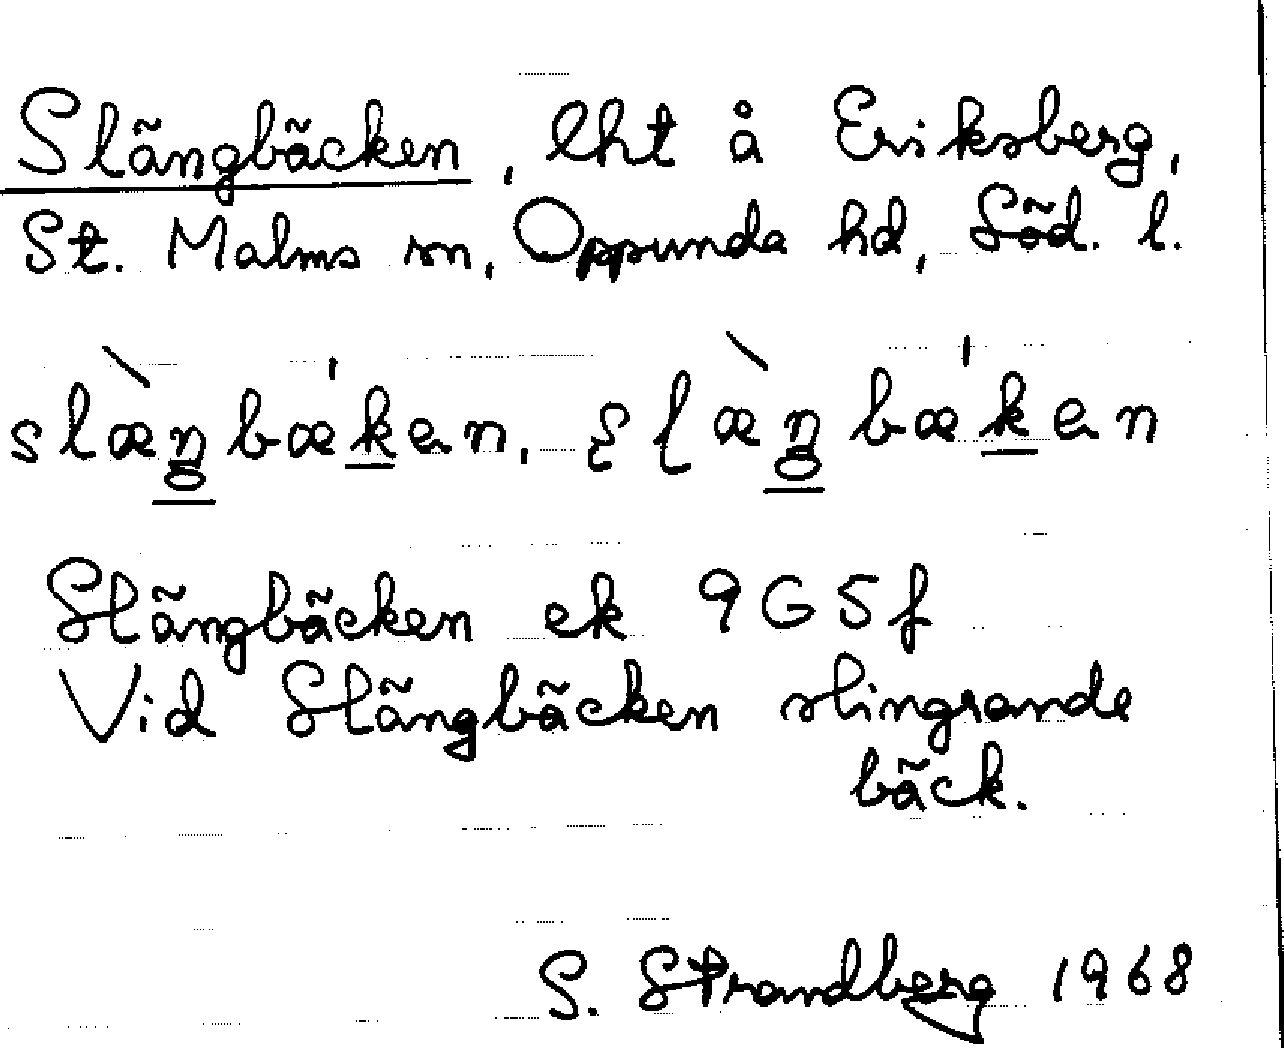 Slängbäcken, lht å Eriksberg,
St. Malms sn, Oppunda hd, Söd. l.
slæ̀ŋbæ'ken, ʂɭæ̀ŋbæ'ken
Slängbäcken ek 9G5f
Vid Slängbäcken slingrande
bäck.
S. Strandberg 1968